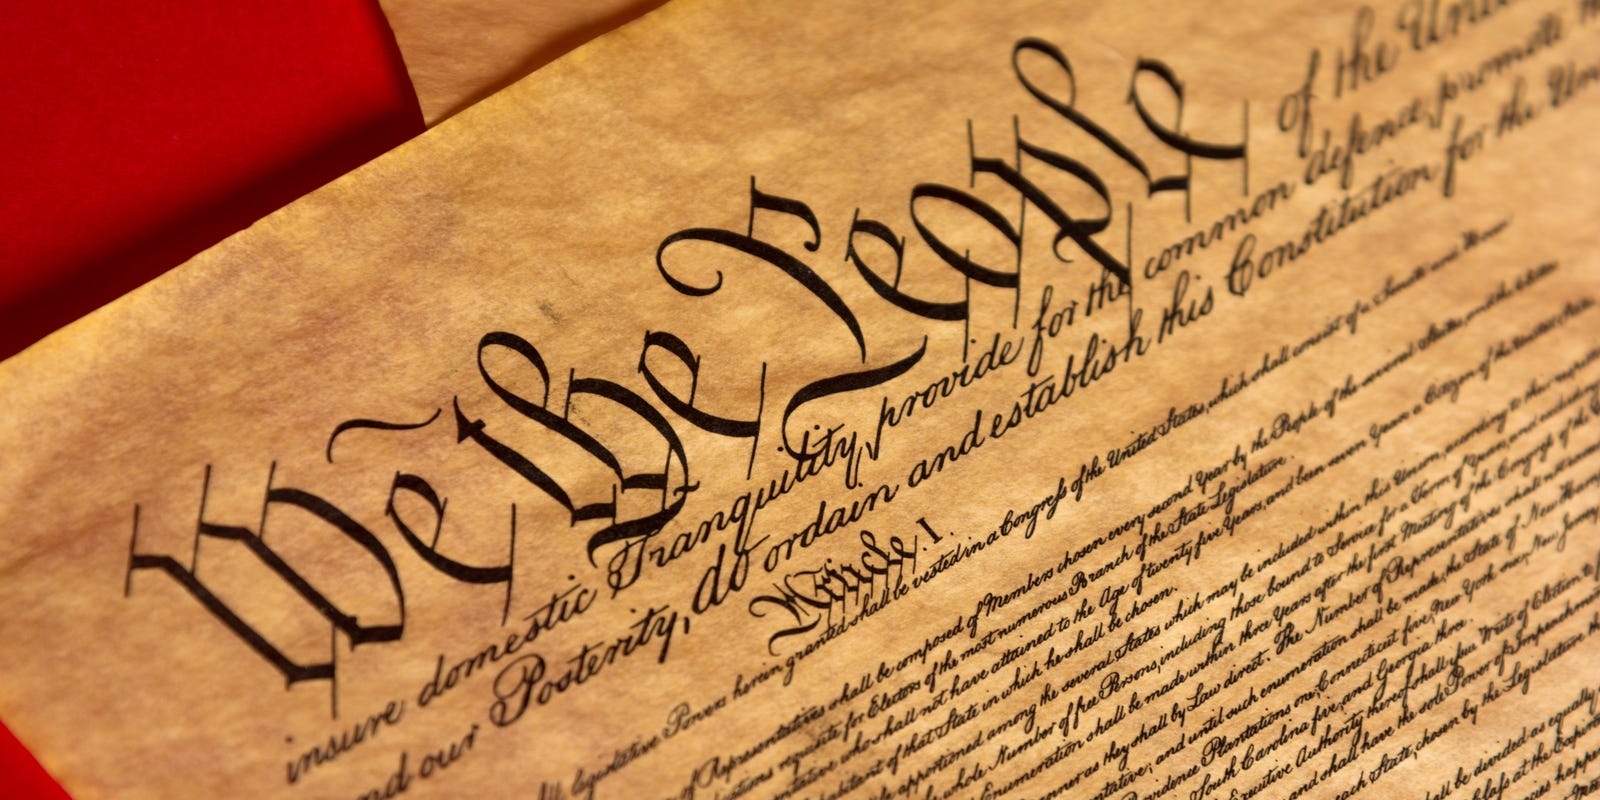 We the People of the Unit
insure domestic Tranquility, provide for the common defence, promote
and our Posterity, do ordain and establish this Constitution for the Un
Article. I.
legislative Powers herein granted shall be vested in a Congress of the United States, which shall consist of a Senate and
of Representatives shall be composed of Members chosen every second Year by the People of the several States, and the
requisite for Electors of the most numerous Branch of the State Legislature.
who shall not have attained to the Age of twenty five Years, and been seven Years a Citizen of the United States,
of that State in which he shall be chosen.
apportioned among the several States which may be included within this Union, according to their
whole Number of free Persons, including those bound to Service for a Term of Years, and
Enumeration shall be made within three Years after the first Meeting of the Congress of the
as they shall by Law direct. The Number of Representatives shall not
and until such enumeration shall be made, the State of New
Providence Plantations one, Connecticut five, New York six, New Jersey
South Carolina five, and Georgia three.
Executive Authority thereof shall issue Writs of Election to
and shall have the sole Power of Impeachment
each State, chosen by the Legislature
shall be divided as equally
Class at the
happen